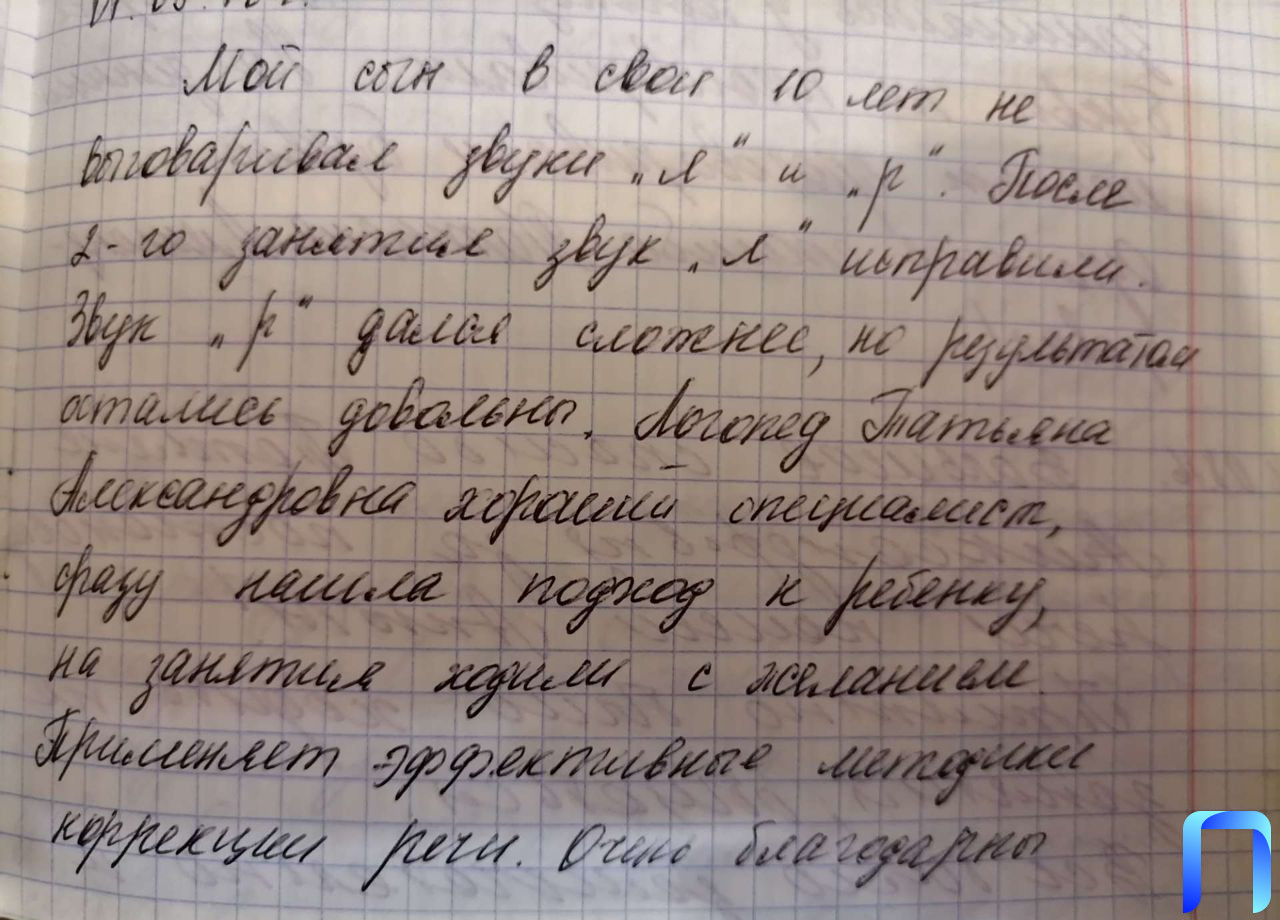 Мой сын в свои 10 лет не
выговаривал звуки „л“ и „р“. После
2-го занятия звук „л“ исправили.
Звук „р“ дался сложнее, но результатом
остались довольны. Логопед Татьяна
Александровна хороший специалист,
сразу нашла подход к ребенку,
на занятия ходили с желанием.
Применяет эффективные методики
коррекции речи. Очень благодарны